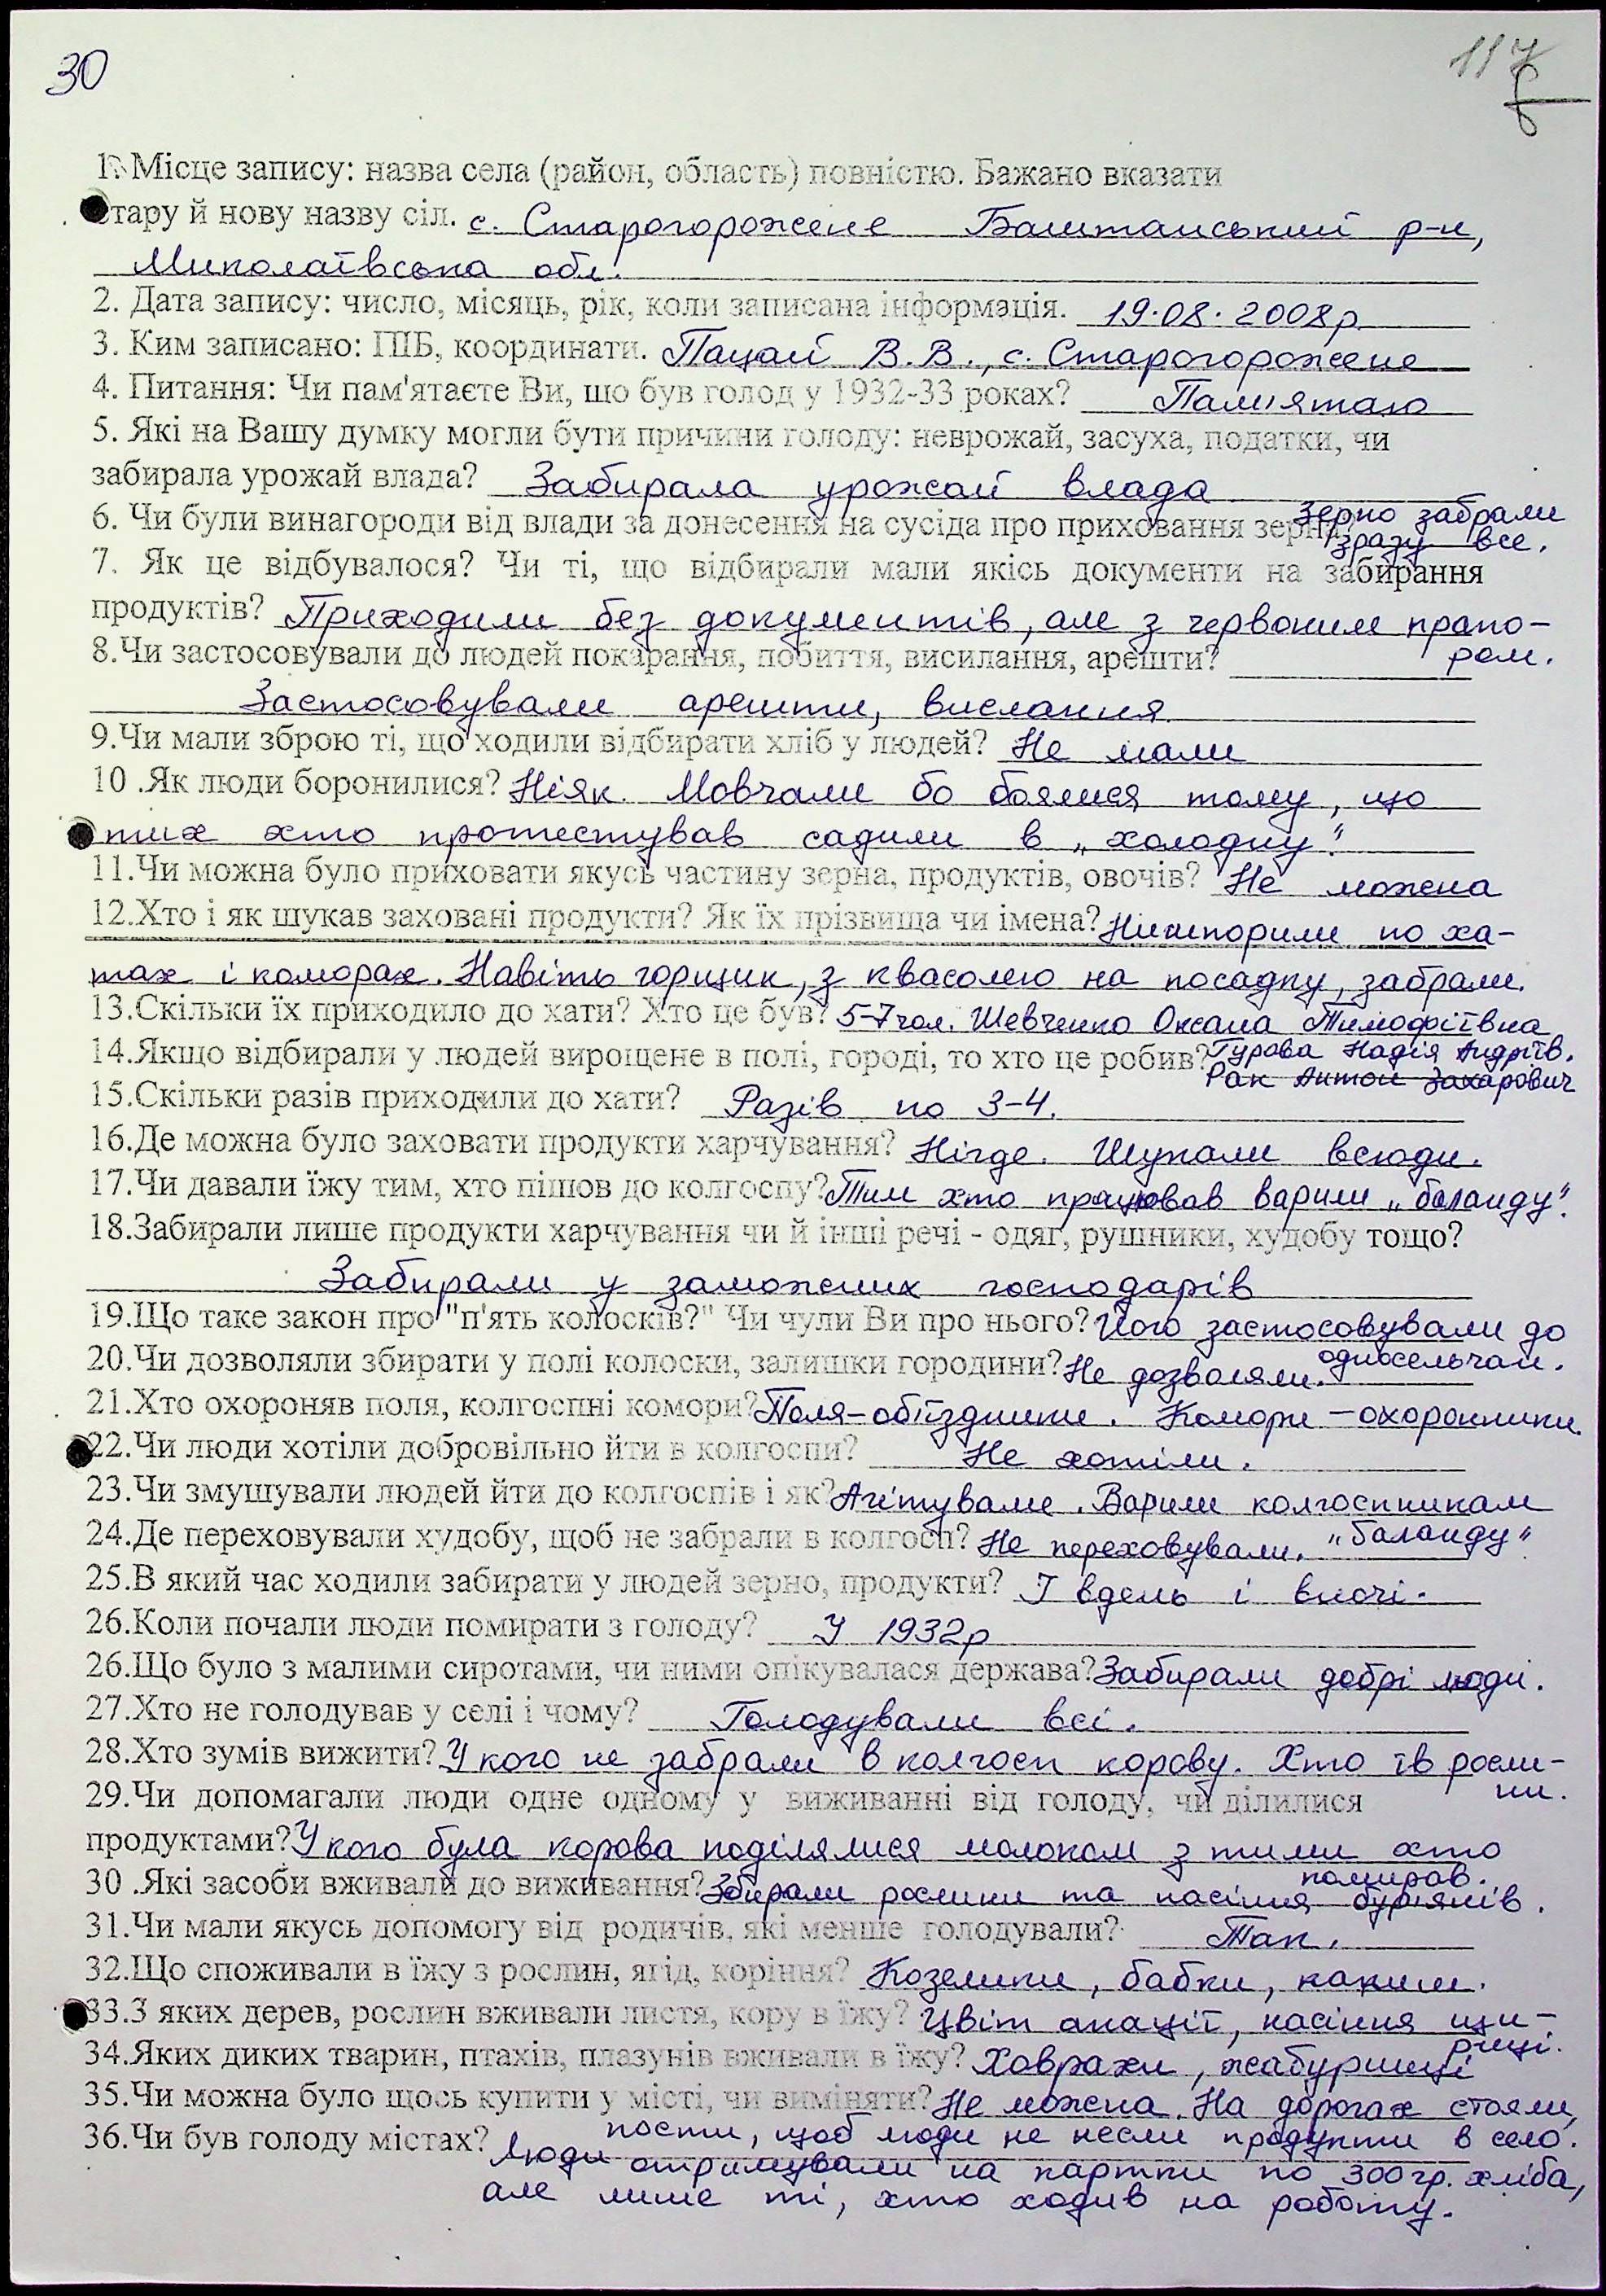 30
117
1. Місце запису: назва села (район, область) повністю. Бажано вказати
стару й нову назву сіл. с. Старогорожене Баштанський р-н,
Миколаївська обл.
2. Дата запису: число, місяць, рік, коли записана інформація. 19.08.2008р.
3. Ким записано: ПІБ, координати. Пацай В.В., с. Старогорожене
4. Питання: Чи пам'ятаєте Ви, що був голод у 1932-33 роках? Пам'ятаю
5. Які на Вашу думку могли бути причини голоду: неврожай, засуха, податки, чи
забирала урожай влада? Забирала урожай влада
6. Чи були винагороди від влади за донесення на сусіда про приховання зерна? Зерно забрали
зразу все.
7. Як це відбувалося? Чи ті, що відбирали мали якісь документи на забирання
продуктів? Приходили без документів, але з червоним прапо-
ром.
8.Чи застосовували до людей покарання, побиття, висилання, арешти?
Застосовували арешти, вислання
9.Чи мали зброю ті, що ходили відбирати хліб у людей? Не мали
10 .Як люди боронилися? Ніяк. Мовчали бо боялися тому, що
тих хто протестував садили в „холодну".
11.Чи можна було приховати якусь частину зерна, продуктів, овочів? Не можна
12.Хто і як шукав заховані продукти? Як їх прізвища чи імена? Нишпорили по ха-
тах і коморах. Навіть горщик, з квасолею на посадку, забрали.
13.Скільки їх приходило до хати? Хто це був? 5-7 чол. Шевченко Оксана Тимофіївна
14.Якщо відбирали у людей вирощене в полі, городі, то хто це робив? Гурова Надія Андріїв.
Рак Антон Захарович
15.Скільки разів приходили до хати? Разів по 3-4.
16.Де можна було заховати продукти харчування? Нігде. Шукали всюди.
17.Чи давали їжу тим, хто пішов до колгоспу? Тим хто працював варили „баланду".
18.Забирали лише продукти харчування чи й інші речі - одяг, рушники, худобу тощо?
Забирали у заможних господарів
19.Що таке закон про "п'ять колосків?" Чи чули Ви про нього? Його застосовували до
односельчан.
20.Чи дозволяли збирати у полі колоски, залишки городини? Не дозволяли.
21.Хто охороняв поля, колгоспні комори? Поля-об'їздники. Комори - охоронники.
22.Чи люди хотіли добровільно йти в колгоспи? Не хотіли.
23.Чи змушували людей йти до колгоспів і як? Агітували. Варили колгоспникам
„баланду"
24.Де переховували худобу, щоб не забрали в колгосп? Не переховували.
25.В який час ходили забирати у людей зерно, продукти? І вдень і вночі.
26.Коли почали люди помирати з голоду? У 1932р
26.Що було з малими сиротами, чи ними опікувалася держава? Забирали добрі люди.
27.Хто не голодував у селі і чому? Голодували всі.
28.Хто зумів вижити? У кого не забрали в колгосп корову. Хто їв росли-
ни.
29.Чи допомагали люди одне одному у виживанні від голоду, чи ділилися
продуктами? У кого була корова поділялися молоком з тими хто
помирав.
30 .Які засоби вживали до виживання? Збирали рослини та насіння бур'янів.
31.Чи мали якусь допомогу від родичів, які менше голодували? Так.
32.Що споживали в їжу з рослин, ягід, коріння? Козелики, бабки, какиш.
33.З яких дерев, рослин вживали листя, кору в їжу? Цвіт акації, насіння щи-
риці.
34.Яких диких тварин, птахів, плазунів вживали в їжу? Ховрахи, жабуриці
35.Чи можна було щось купити у місті, чи виміняти? Не можна. На дорогах стояли
пости, щоб люди не несли продукти в село.
36.Чи був голоду містах? Люди отримували на картки по 300 гр. хліба,
але лише ті, хто ходив на роботу.